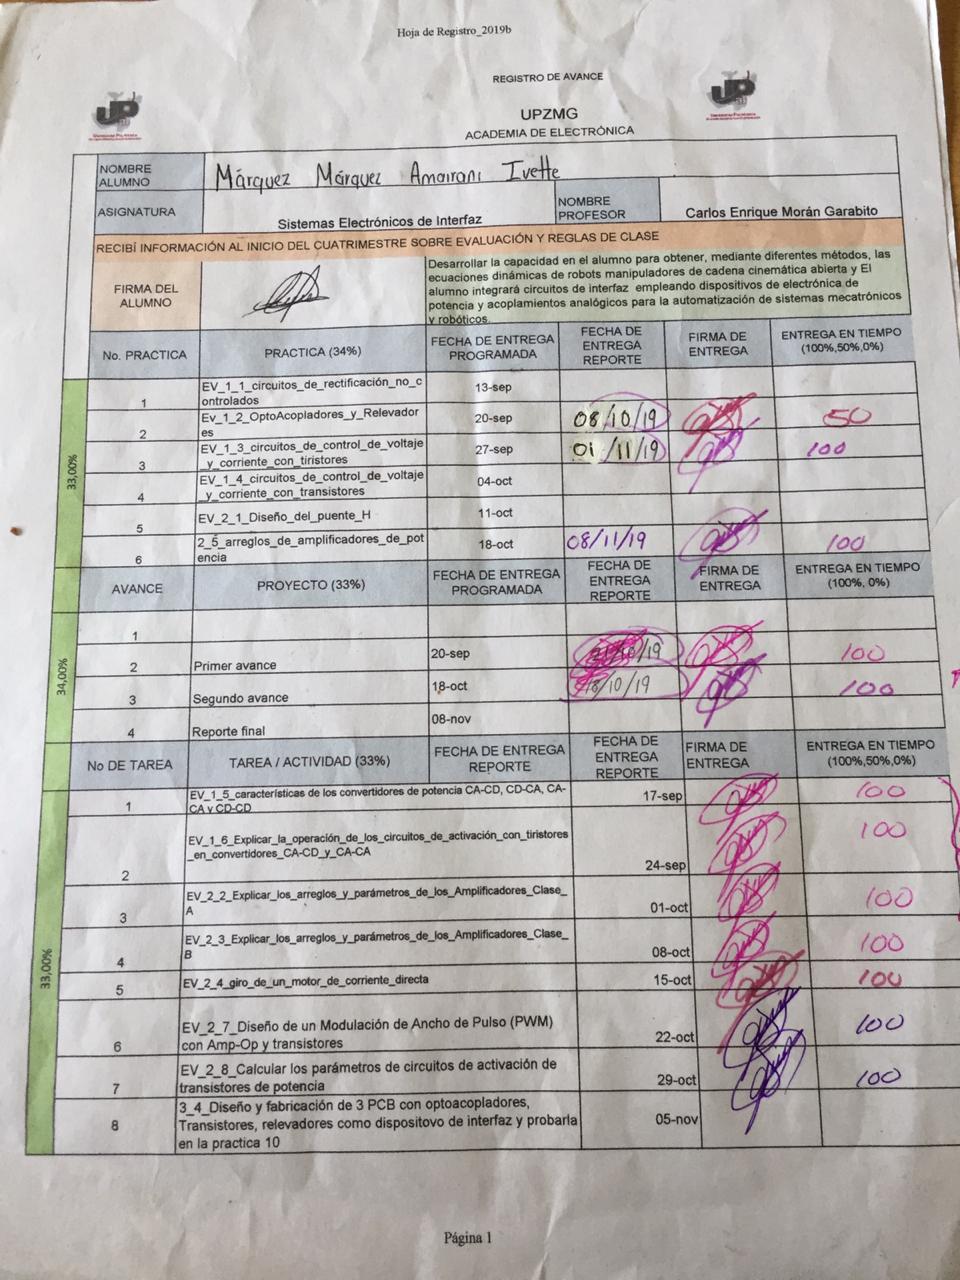 Hoja de Registro_2019b
REGISTRO DE AVANCE
UPZMG
ACADEMIA DE ELECTRÓNICA
NOMBRE ALUMNO
Márquez Márquez Amairani Ivette
ASIGNATURA
Sistemas Electrónicos de Interfaz
NOMBRE PROFESOR
Carlos Enrique Morán Garabito
RECIBÍ INFORMACIÓN AL INICIO DEL CUATRIMESTRE SOBRE EVALUACIÓN Y REGLAS DE CLASE
FIRMA DEL ALUMNO
Desarrollar la capacidad en el alumno para obtener, mediante diferentes métodos, las
ecuaciones dinámicas de robots manipuladores de cadena cinemática abierta y El
alumno integrará circuitos de interfaz empleando dispositivos de electrónica de
potencia y acoplamientos analógicos para la automatización de sistemas mecatrónicos
y robóticos.
No. PRACTICA
PRACTICA (34%)
FECHA DE ENTREGA PROGRAMADA
FECHA DE ENTREGA REPORTE
FIRMA DE ENTREGA
ENTREGA EN TIEMPO (100%,50%,0%)
33,00%
1 EV_1_1_circuitos_de_rectificación_no_controlados 13-sep
2 Ev_1_2_OptoAcopladores_y_Relevadores 20-sep 08/10/19 50
3 EV_1_3_circuitos_de_control_de_voltaje_y_corriente_con_tiristores 27-sep 01/11/19 100
4 EV_1_4_circuitos_de_control_de_voltaje_y_corriente_con_transistores 04-oct
5 EV_2_1_Diseño_del_puente_H 11-oct
6 2_5_arreglos_de_amplificadores_de_potencia 18-oct 08/11/19 100
AVANCE
PROYECTO (33%)
FECHA DE ENTREGA PROGRAMADA
FECHA DE ENTREGA REPORTE
FIRMA DE ENTREGA
ENTREGA EN TIEMPO (100%, 0%)
34,00%
1
2 Primer avance 20-sep /10/19 100
3 Segundo avance 18-oct 18/10/19 100
4 Reporte final 08-nov
No DE TAREA
TAREA / ACTIVIDAD (33%)
FECHA DE ENTREGA REPORTE
FECHA DE ENTREGA REPORTE
FIRMA DE ENTREGA
ENTREGA EN TIEMPO (100%,50%,0%)
33,00%
1 EV_1_5_características de los convertidores de potencia CA-CD, CD-CA, CA-CA y CD-CD 17-sep 100
2 EV_1_6_Explicar_la_operación_de_los_circuitos_de_activación_con_tiristores_en_convertidores_CA-CD_y_CA-CA 24-sep 100
3 EV_2_2_Explicar_los_arreglos_y_parámetros_de_los_Amplificadores_Clase_A 01-oct 100
4 EV_2_3_Explicar_los_arreglos_y_parámetros_de_los_Amplificadores_Clase_B 08-oct 100
5 EV_2_4_giro_de_un_motor_de_corriente_directa 15-oct 100
6 EV_2_7_Diseño de un Modulación de Ancho de Pulso (PWM) con Amp-Op y transistores 22-oct 100
7 EV_2_8_Calcular los parámetros de circuitos de activación de transistores de potencia 29-oct 100
8 3_4_Diseño y fabricación de 3 PCB con optoacopladores, Transistores, relevadores como dispositovo de interfaz y probarla en la practica 10 05-nov
Página 1